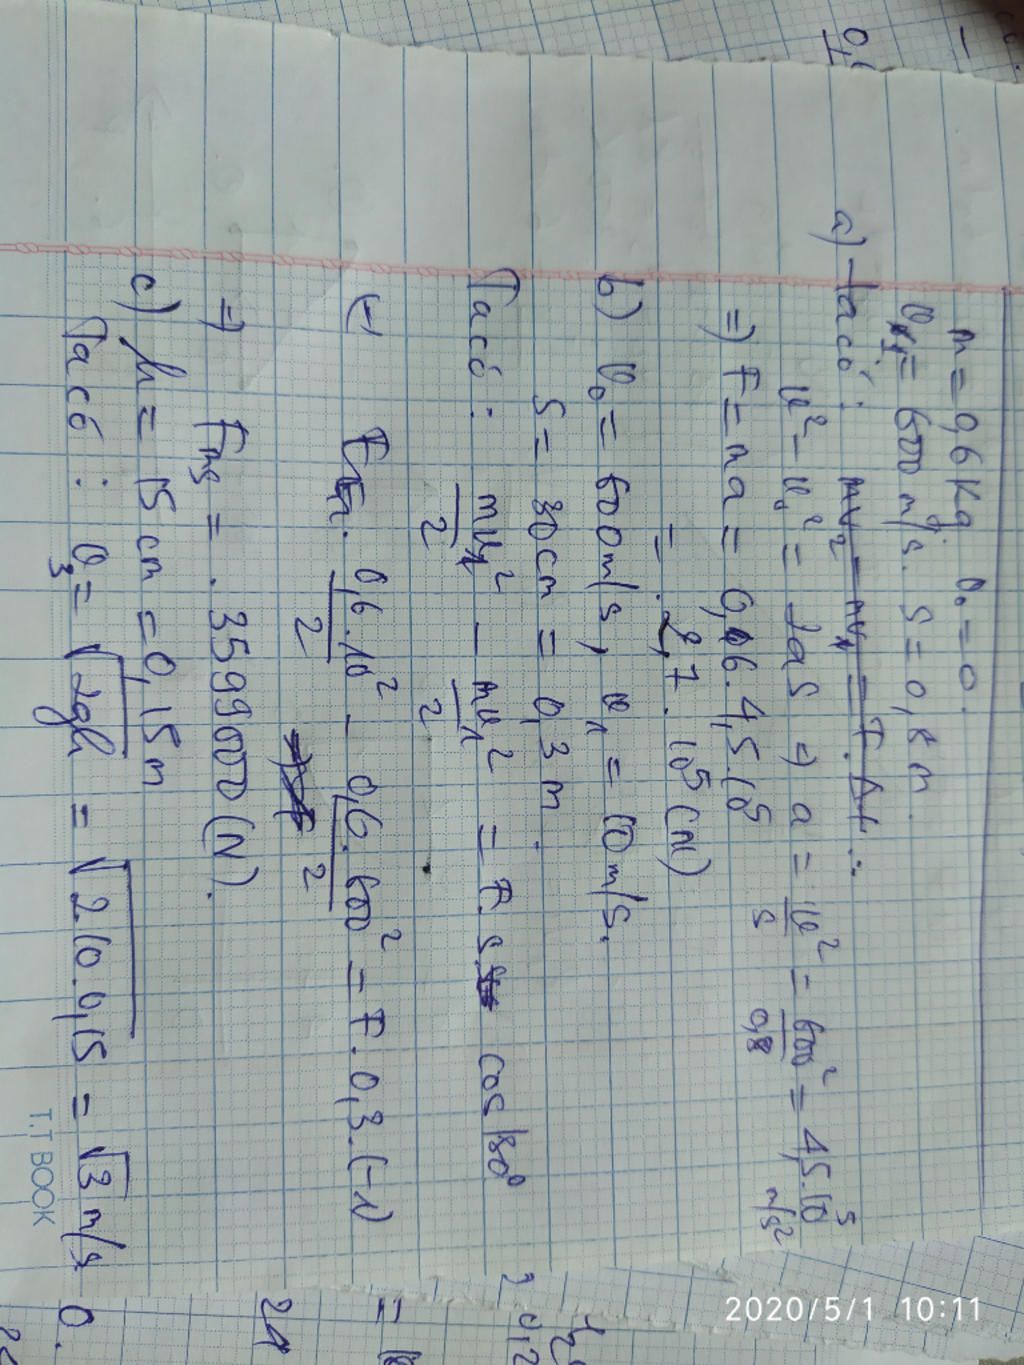 m = 0,6 Kg v₀ = 0.
v₁ = 600 m/s. S = 0,8 m.
a) Ta có: mv₂ - mv₁ = F.Δt.
v² - v₀² = 2aS ⇒ a = v²/S = 600²/0,8 = 4,5.10⁵ m/s²
⇒ F = ma = 0,06.4,5.10⁵
= 2,7.10⁵ (N)
b) v₀ = 600 m/s, v₁ = 10 m/s.
S = 30 cm = 0,3 m.
Ta có: mv₂²/2 - mv₁²/2 = F.S. cos 180°
(-) 0,6.10²/2 - 0,6.600²/2 = F.0,3.(-1)
⇒ Fms = 359900 (N).
c) h = 15 cm = 0,15 m
Ta có: v₃ = √2gh = √2.10.0,15 = √3 m/s
T.T BOOK
2020/5/1 10:11